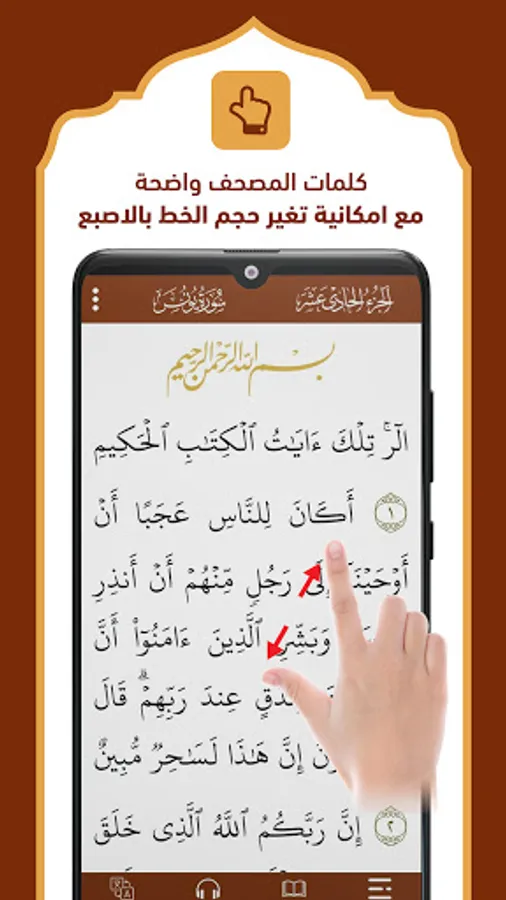 كلمات المصحف واضحة
مع امكانية تغير حجم الخط بالاصبع
الجزء الحادي عشر سورة يونس
بسم الله الرحمن الرحيم
الٓرۚ تِلْكَ ءَايَٰتُ ٱلْكِتَٰبِ ٱلْحَكِيمِ
١ أَكَانَ لِلنَّاسِ عَجَبًا أَنْ
أَوْحَيْنَآ إِلَىٰ رَجُلٍ مِّنْهُمْ أَنْ أَنذِرِ
وَبَشِّرِ ٱلَّذِينَ ءَامَنُوٓا۟ أَنَّ
عِندَ رَبِّهِمْ ۗ قَالَ
إِنَّ هَٰذَا لَسَٰحِرٌ مُّبِينٌ
٢ إِنَّ رَبَّكُمُ ٱللَّهُ ٱلَّذِى خَلَقَ